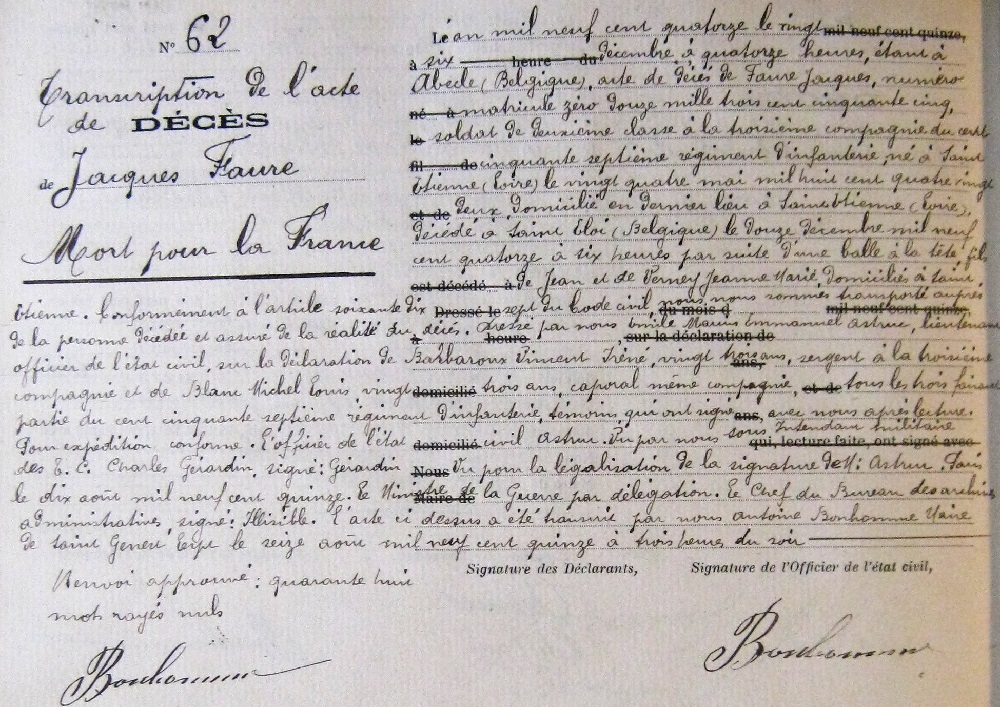 N° 62
Transcription de l'acte
de DÉCÈS
de Jacques Faure
Mort pour la France
L'an mil neuf cent quatorze le vingt mil neuf cent quinze,
à six heure du décembre à quatorze heures, étant à
Abeele (Belgique), acte de décès de Faure Jacques, numéro
né à matricule zéro douze mille trois cent cinquante cinq,
le soldat de deuxième classe à la troisième compagnie du cent
fil de cinquante septième régiment d'infanterie né à Saint
Etienne (Loire) le vingt quatre mai mil huit cent quatre vingt
et de deux, domicilié en dernier lieu à Saint Etienne (Loire),
décédé à Saint Eloi (Belgique) le douze décembre mil neuf
cent quatorze à six heures par suite d'une balle à la tête, fils
est décédé, à de Jean et de Verney Jeanne Marie, domiciliés à Saint
Etienne. Conformément à l'article soixante dix Dressé le sept du Code civil, du mois d nous nous sommes transporté auprès mil neuf cent quinze,
de la personne décédée et assuré de la réalité du décès. à heure Dressé par nous sur la déclaration de Emile Marius Emmanuel Astruc, lieutenant
officier de l'état civil, sur la déclaration de Barbaroux Vincent Iréné, vingt trois ans, ans, sergent à la troisième
compagnie et de Blanc Michel Louis vingt domicilié trois ans, caporal même compagnie, et de tous les trois faisant
partie du cent cinquante septième régiment d'infanterie témoins qui ont signé ans, avec nous après lecture.
Pour expédition conforme. L'officier de l'état domicilié civil Astruc. Vu par nous sous Intendant militaire qui, lecture faite, ont signé avec
des E. C. Charles Gérardin, signé: Gérardin Nous Vu pour la légalisation de la signature de M: Astruc. Paris
le dix août mil neuf cent quinze. Le Ministre de Maire de la Guerre par délégation. Le Chef du Bureau des archives
administratives signé: Illisible. L'acte ci dessus a été transcrit par nous Antoine Bonhomme Maire
de Saint Genest Lerpt le seize août mil neuf cent quinze à trois heures du soir
Signature des Déclarants, Signature de l'Officier de l'état civil,
Renvoi approuvé: quarante huit
mots rayés nuls
Bonhomme
Bonhomme